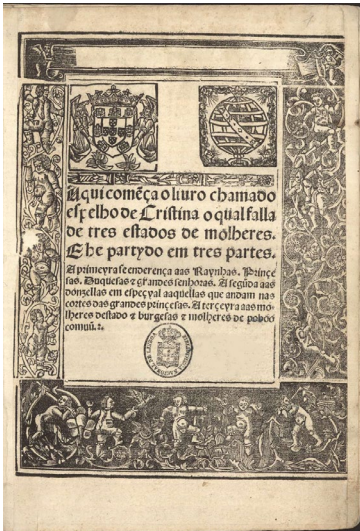 Aqui comẽça o liuro chamado
espelho de Cristina o qual falla
de tres estados de molheres.
E he partydo em tres partes.
A primeyra se enderença aas Raynhas. Prinçe
sas. Duquesas & grandes senhoras. A segũda aas
donzellas em espeçyal aaquellas que andam nas
cortes das grandes prinçesas. A terçeyra aas mo
lheres destado & burgesas & molheres de pobóo
comuũ.